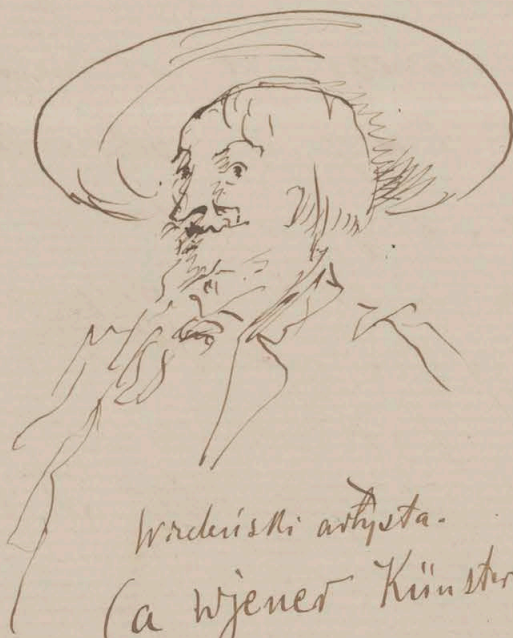 Wiedeński artysta.
(a Wjener Künstler